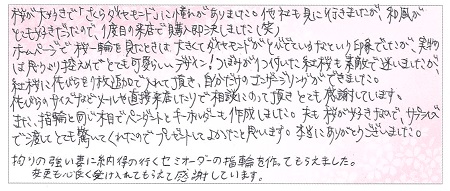 桜が大好きで「さくらダイヤモンド」に憧れがありました。他社も見に行きましたが、和風が
とても好きだったので、1度目の来店で購入即決しました(笑)
ホームページで桜一輪を見たときは大きくダイヤモンドがとびでているなという印象でしたが、実物
は思ったより控えめでとても可愛らしいデザイン！つぼみがついていた紅桜も素敵で迷いましたが、
紅桜に花びらを1枚追加で入れて頂き、自分だけのエンゲージリングができました。
花びらのサイズなどメールや直接来店したりで相談にのって頂きとても感謝しています。
また、指輪と同じ木目でペンダントとキーホルダーも作成しました。夫も桜が好きなので、サプライズ
で渡してとても驚いてくれたのでプレゼントしてよかったと思います。本当にありがとうございました。
拘りの強い妻に納得の行くセミオーダーの指輪を作ってもらえました。
変更も心良く受け入れてもらえて感謝しています。